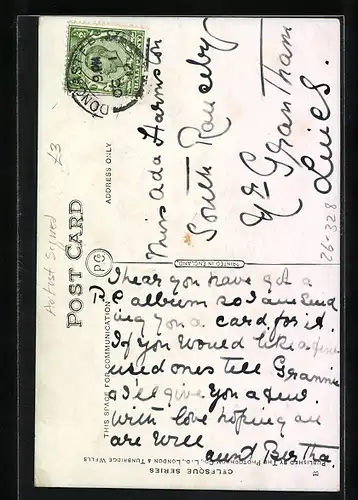 POST CARD
P.C
THIS SPACE FOR COMMUNICATION
ADDRESS ONLY
PRINTED IN ENGLAND
DONCAST
Miss Ada Harmston
South Rauceby
Nr Grantham
Lincs.
I hear you have got a
P.C album so I am send
ing you a card for it.
If you would like a few
used ones tell Grannie
& I'll give you a few.
With love hoping all
are well
aunt Bertha.
Artist Signed £3
26-328
CELESQUE SERIES
PUBLISHED BY THE PHOTOCHROM CO., LD., LONDON & TUNBRIDGE WELLS